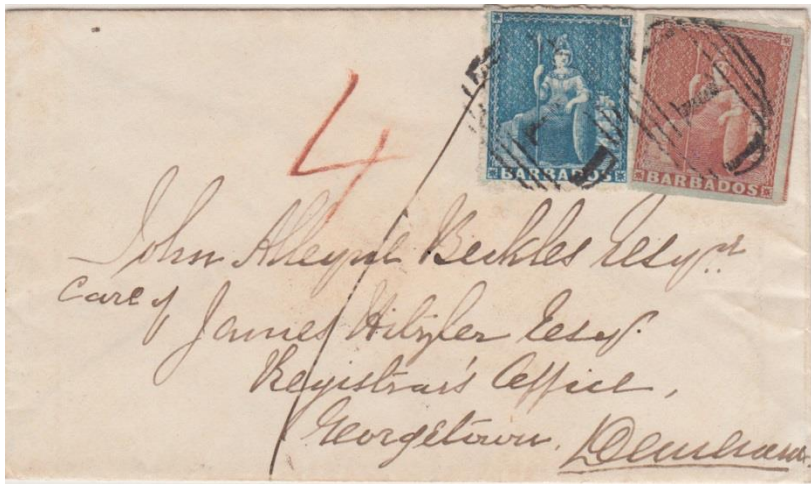 BARBADOS
BARBADOS
4
John Alleyne Beckles Esqr
Care of
James Esqr.
Registrar's Office,
Georgetown. Demerara